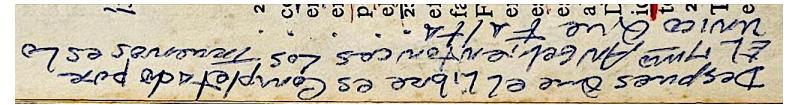 Despues Que el Libro es Completado por
EL 7mo Angel, entonces Los Truenos es Lo
unico Que Falta . . .